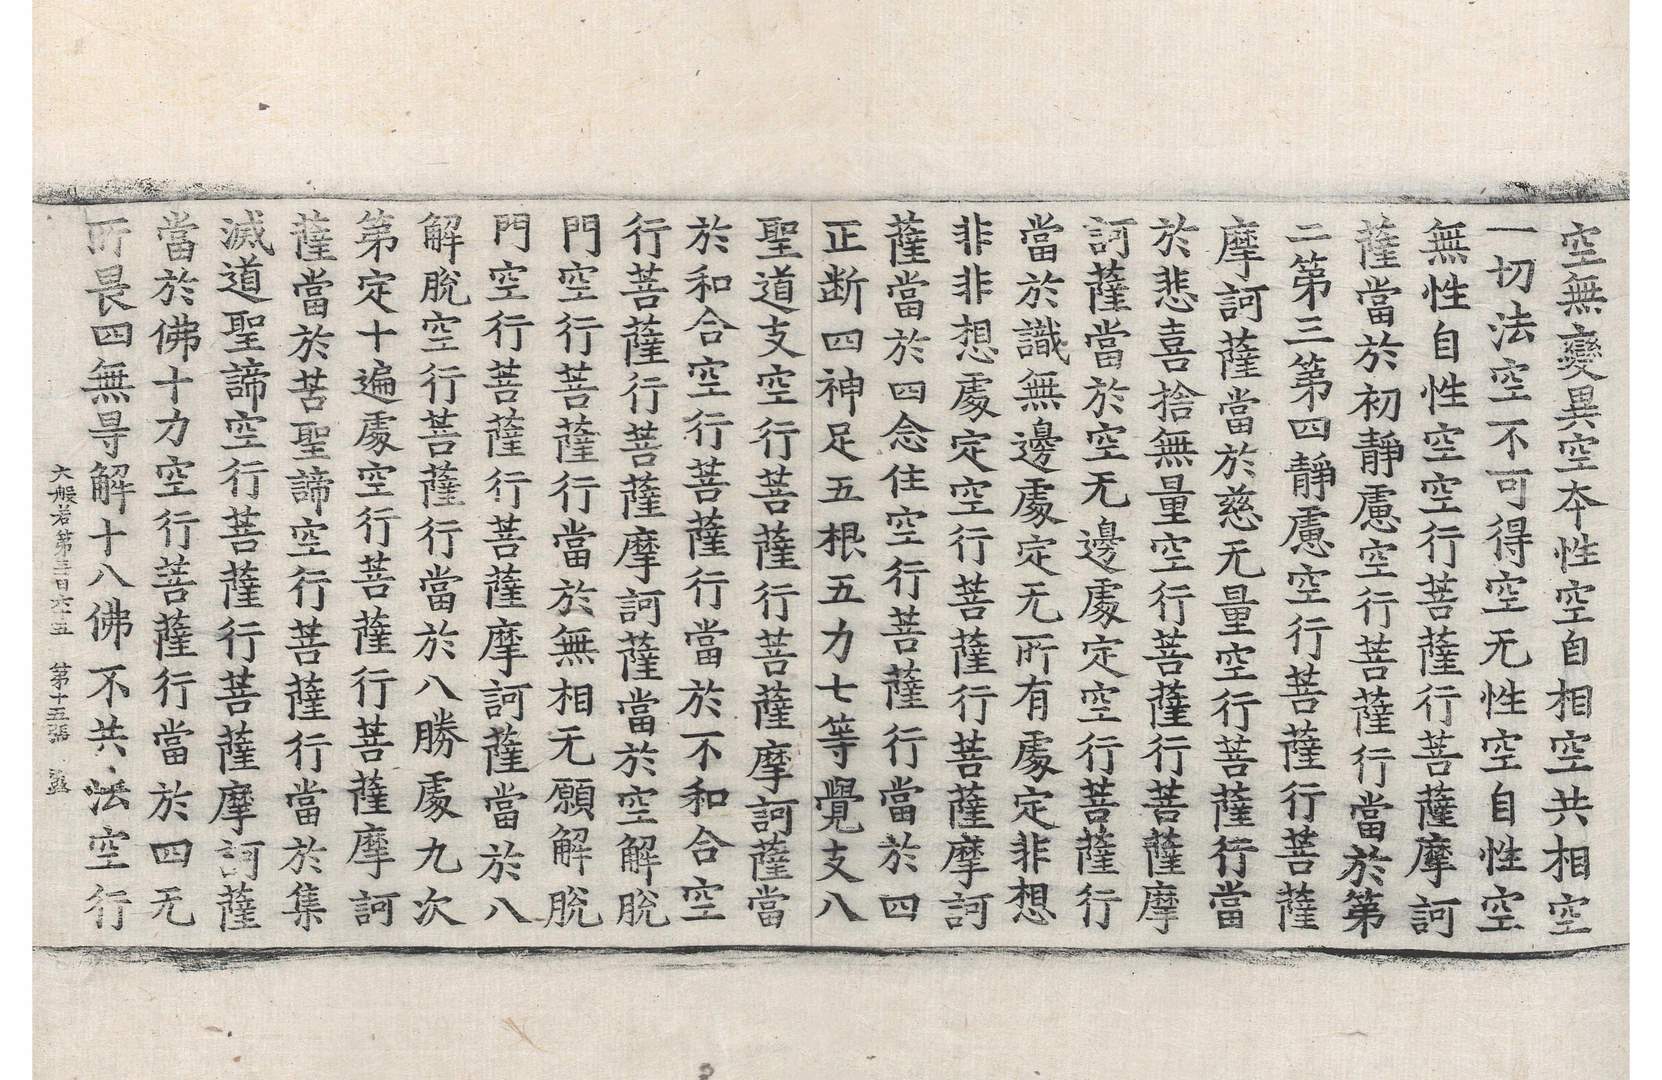 空無變異空本性空自相空共相空
一切法空不可得空无性空自性空
無性自性空空行菩薩行菩薩摩訶
薩當於初靜慮空行菩薩行當於第
二第三第四靜慮空行菩薩行菩薩
摩訶薩當於慈无量空行菩薩行當
於悲喜捨無量空行菩薩行菩薩摩
訶薩當於空无邊處定空行菩薩行
當於識無邊處定无所有處定非想
非非想處定空行菩薩行菩薩摩訶
薩當於四念住空行菩薩行當於四
正断四神足五根五力七等覺支八
聖道支空行菩薩行菩薩摩訶薩當
於和合空行菩薩行當於不和合空
行菩薩行菩薩摩訶薩當於空解脫
門空行菩薩行當於無相无願解脫
門空行菩薩行菩薩摩訶薩當於八
解脫空行菩薩行當於八勝處九次
第定十遍處空行菩薩行菩薩摩訶
薩當於苦聖諦空行菩薩行當於集
滅道聖諦空行菩薩行菩薩摩訶薩
當於佛十力空行菩薩行當於四无
所畏四無㝵解十八佛不共法空行
大般若第三百六十五 第十五張